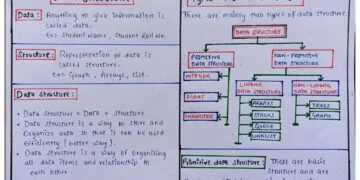 Data : Anything to give information is
called data.
Ex:- Student Name, Student Roll No.
Structure : Representation of data is
called structure.
Ex:- Graph, Arrays, List.
Data Structure :
• Data Structure = Data + Structure
• Data Structure is a way to store and
Organize data so that it can be used
efficiently (better way).
• Data Structure is a way of organizing
all data items and relationship to
each other.
There are mainly two types of data structure.
DATA STRUCTURE
PRIMITIVE
DATA STRUCTURE
NON-PRIMITIVE
DATA STRUCTURE
INTEGER
FLOAT
CHARACTER
LINEAR
DATA STRUCTURE
ARRAYS
STACKS
QUEUE
LINKLIST
NON-LINEAR
DATA STRUCTURE
TREES
GRAPH
Primitive data structure :
There are basic
structure and are